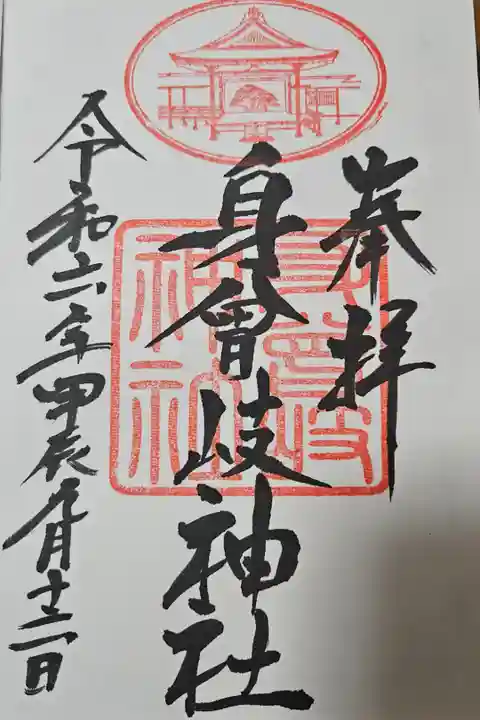 奉拝
身曾岐神社
身曾岐神社
令和六年甲辰九月十二日